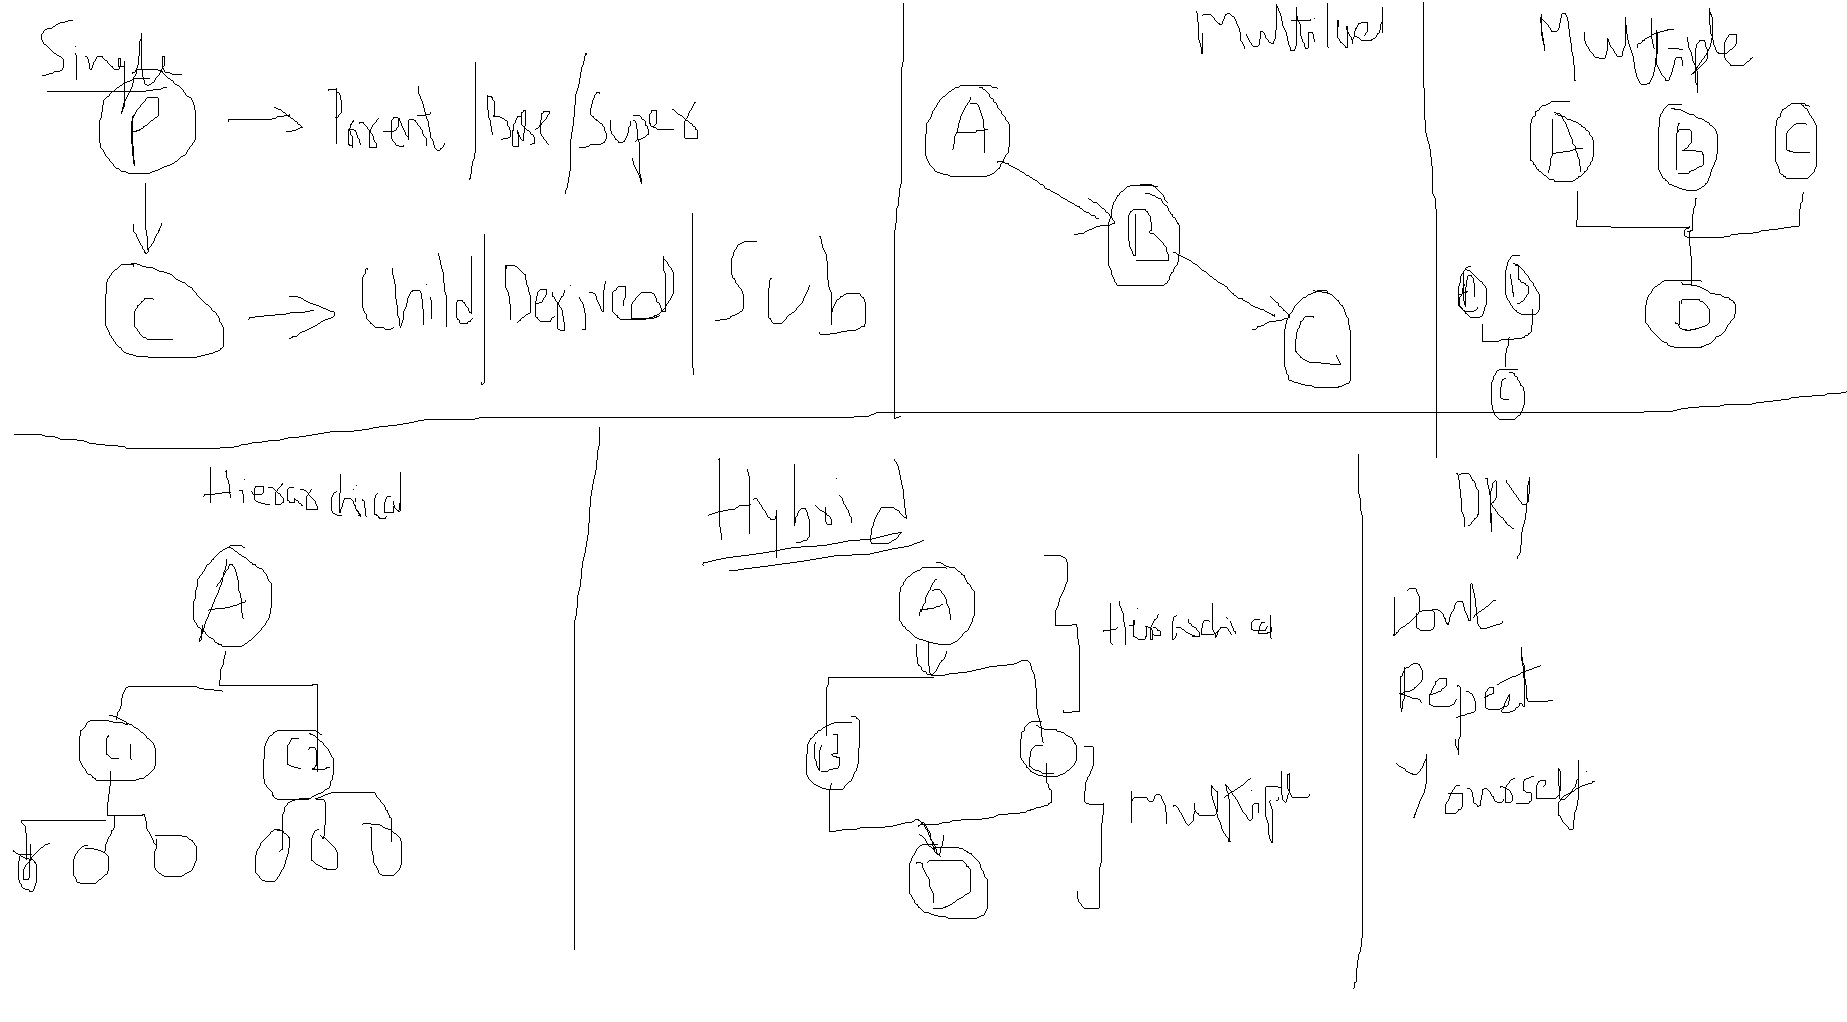 Single
P
Parent / Base / Super
C
Child | Derived | Sub
Multilevel
A
B
C
Multiple
A B C
D
A B
C
Hierarchical
A
C1 C2
Hybrid
A
Hierarchical
B C
Multiple
D
DRY
Dont
Repeat
Yourself